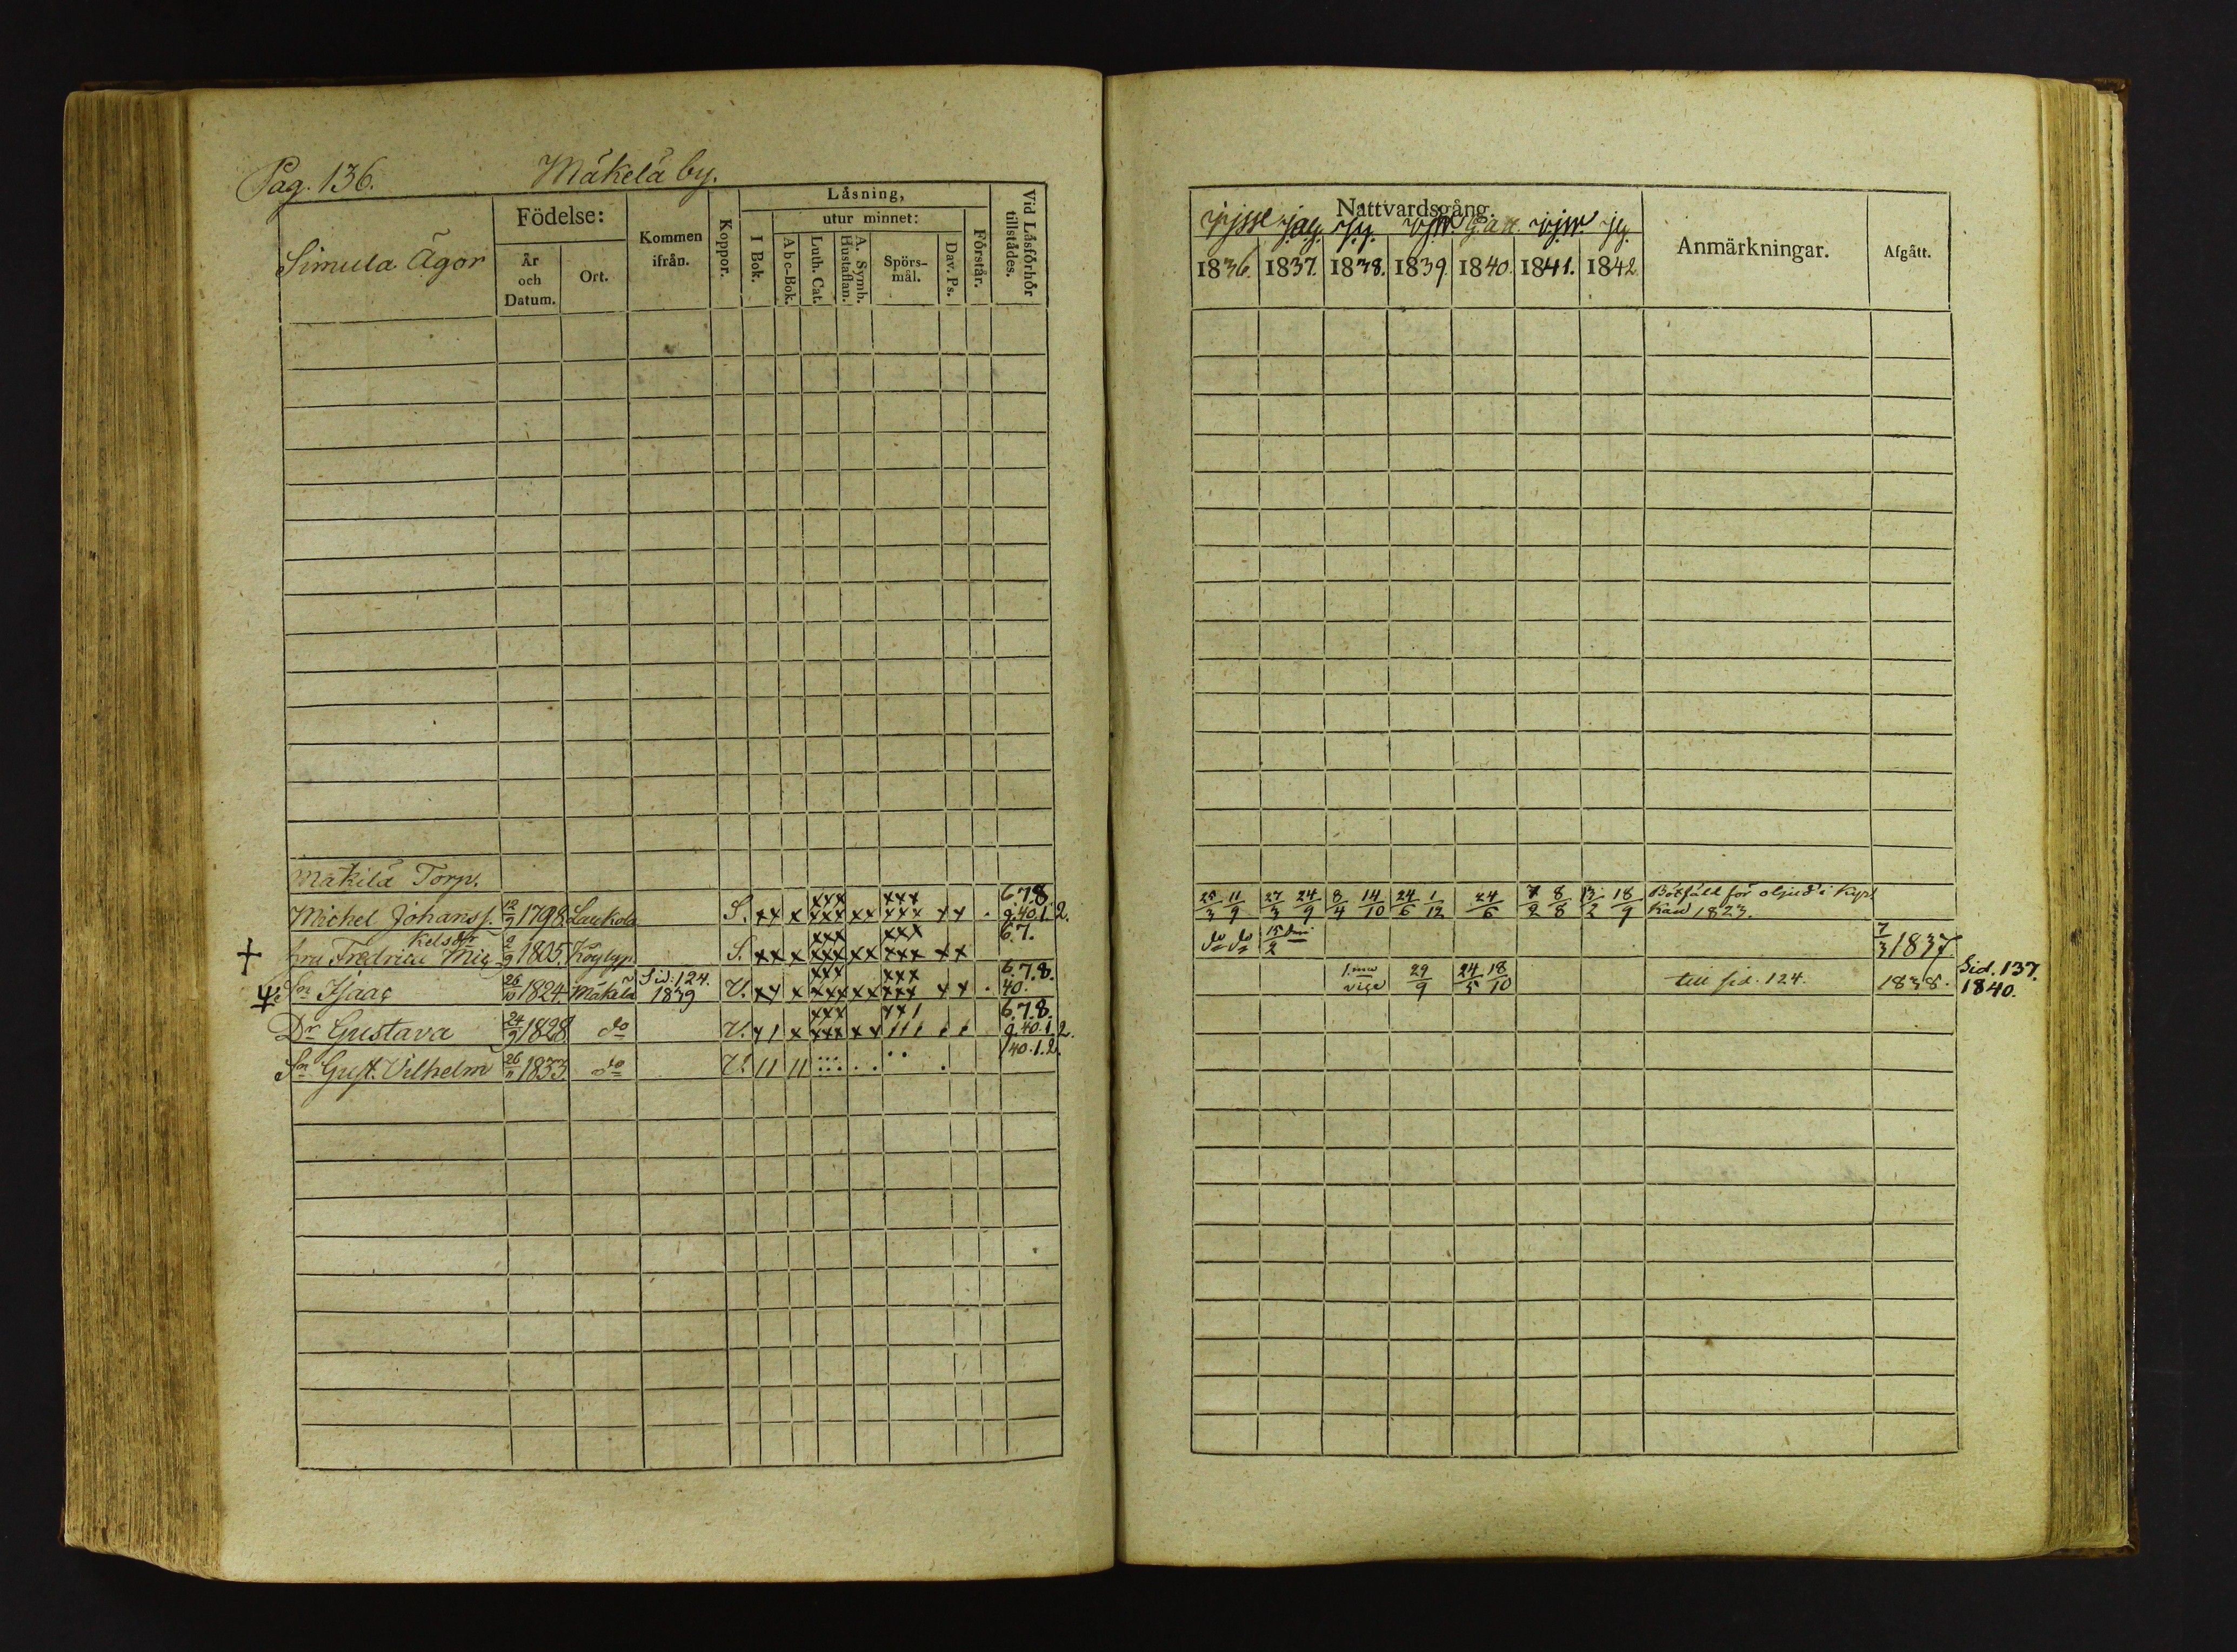 Pag. 136. Mäkelä by.
Simula Ägor
Födelse:
År och Datum.
Ort.
Kommen ifrån.
Koppor.
Låsning,
I Bok.
utur minnet:
Abc-Bok.
Luth. Cat.
A. Symb. Hustaflan.
Spörsmål.
Dav. Ps.
Förstår.
Vid Låsförhör tillstådes.
Mäkilä Torp.
Michel Johanss. 12/9 1798 Laukola S. xx x xxx xxx xx xxx xxx xx . 6.7.8. 9.40.1.2.
+ Hru Fredrica Mic kelsdr 2/9 1805. Köylyp. S. xx x xxx xxx xx xxx xxx xx 6.7.
Sn Isaac 26/10 1824. Mäkelä Sid. 124. 1839 V. xx x xxx xxx xx xxx xxx xx . 6.7.8. 40.
Dr Gustava 24/9 1828 do V. x1 x xxx xxx xx xx1 111 11 6.7.8. 9.40.1.2.
Sn Gust. Vilhelm 26/11 1833. do V. 11 11 40.1.2.
Nattvardsgång.
1836. 1837. 1838. 1839. 1840. 1841. 1842.
Anmärkningar.
Afgått.
25/3 11/9 27/3 24/9 8/4 14/10 24/6 1/12 24/6 7/2 8/8 13/2 18/9 Botfäld för oljud i Kyrk
1823.
do do 15/2 7/3 1837.
1. 29/9 24/5 18/10 till sid. 124. 1838. Sid. 137.
1840.